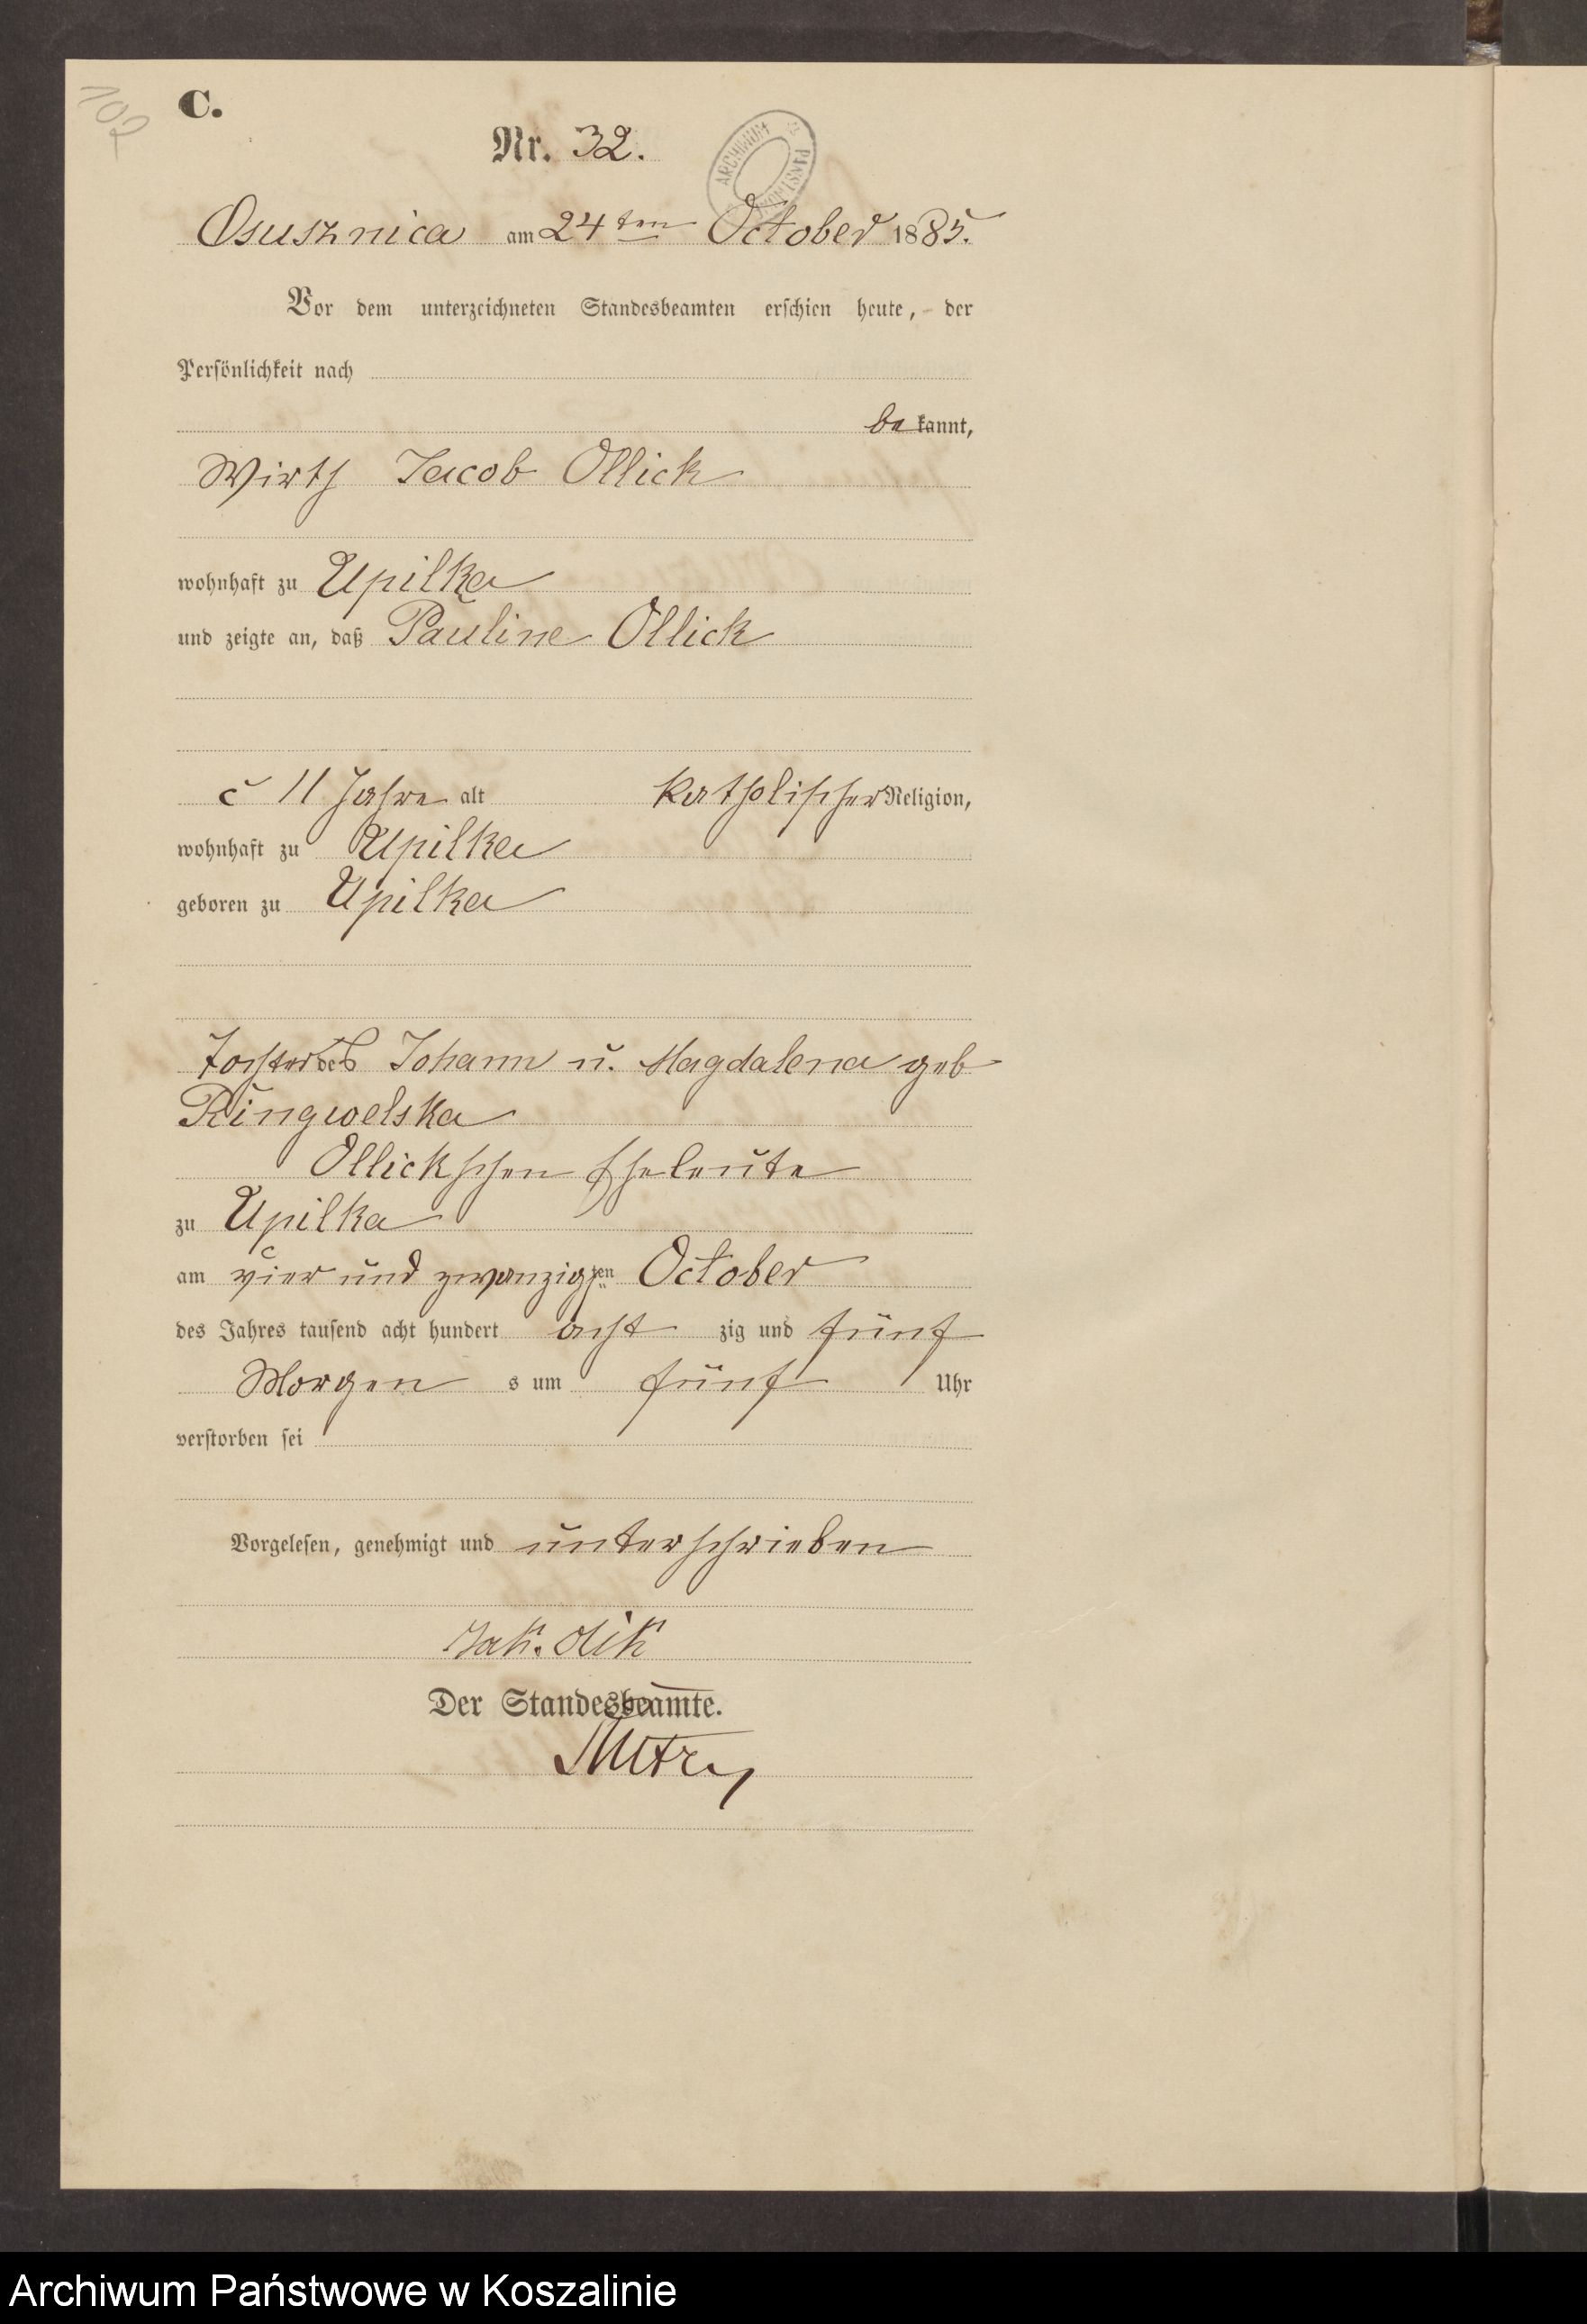 102
C.
Nr. 32.
ARCHIWUM PAŃSTWOWE
Osusznica am 24ten October 1885.
Vor dem unterzeichneten Standesbeamten erschien heute, der
Persönlichkeit nach
bekannt,
Wirth Jacob Ollick
wohnhaft zu Upilka
und zeigte an, daß Pauline Ollick
c 11 Jahre alt katholischer Religion,
wohnhaft zu Upilka
geboren zu Upilka
Tochter des Johann u. Magdalena geb
Ringwelska
Ollickschen Eheleute
zu Upilka
am vier und zwanzigsten October
des Jahres tausend acht hundert acht zig und fünf
Morgen s um fünf Uhr
verstorben sei
Vorgelesen, genehmigt und unterschrieben
Jak. Olik
Der Standesbeamte.
Archiwum Państwowe w Koszalinie